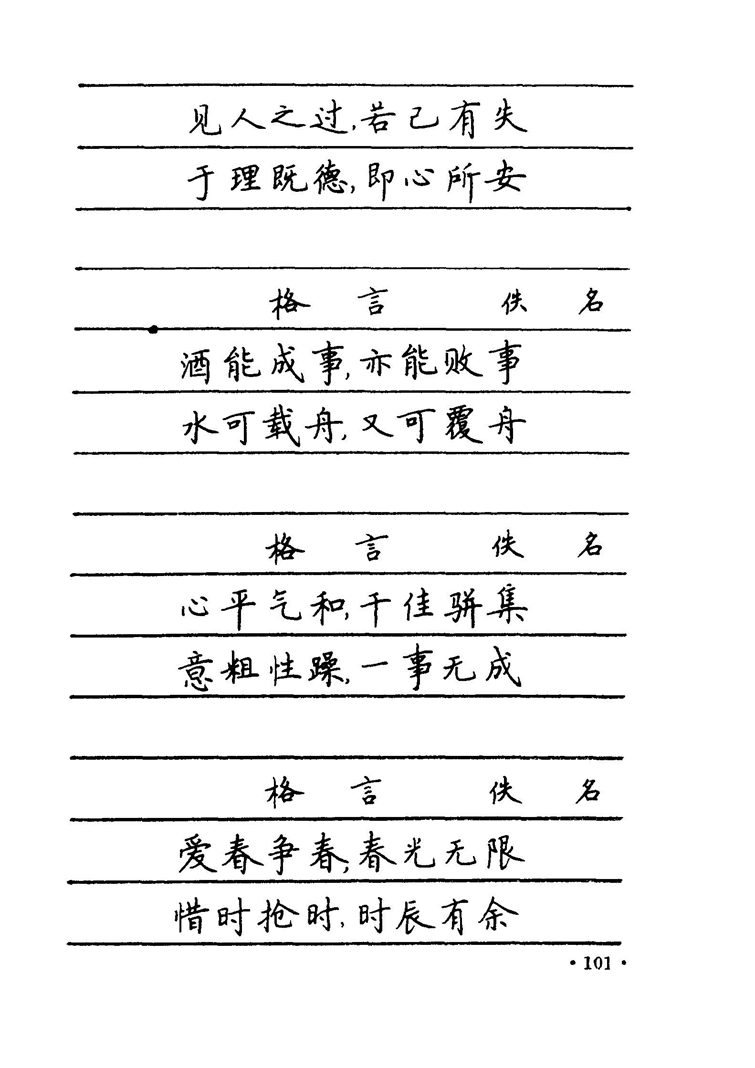 见人之过，若己有失
于理既德，即心所安
格言 佚名
酒能成事，亦能败事
水可载舟，又可覆舟
格言 佚名
心平气和，千佳骈集
意粗性躁，一事无成
格言 佚名
爱春争春，春光无限
惜时抢时，时辰有余
·101·